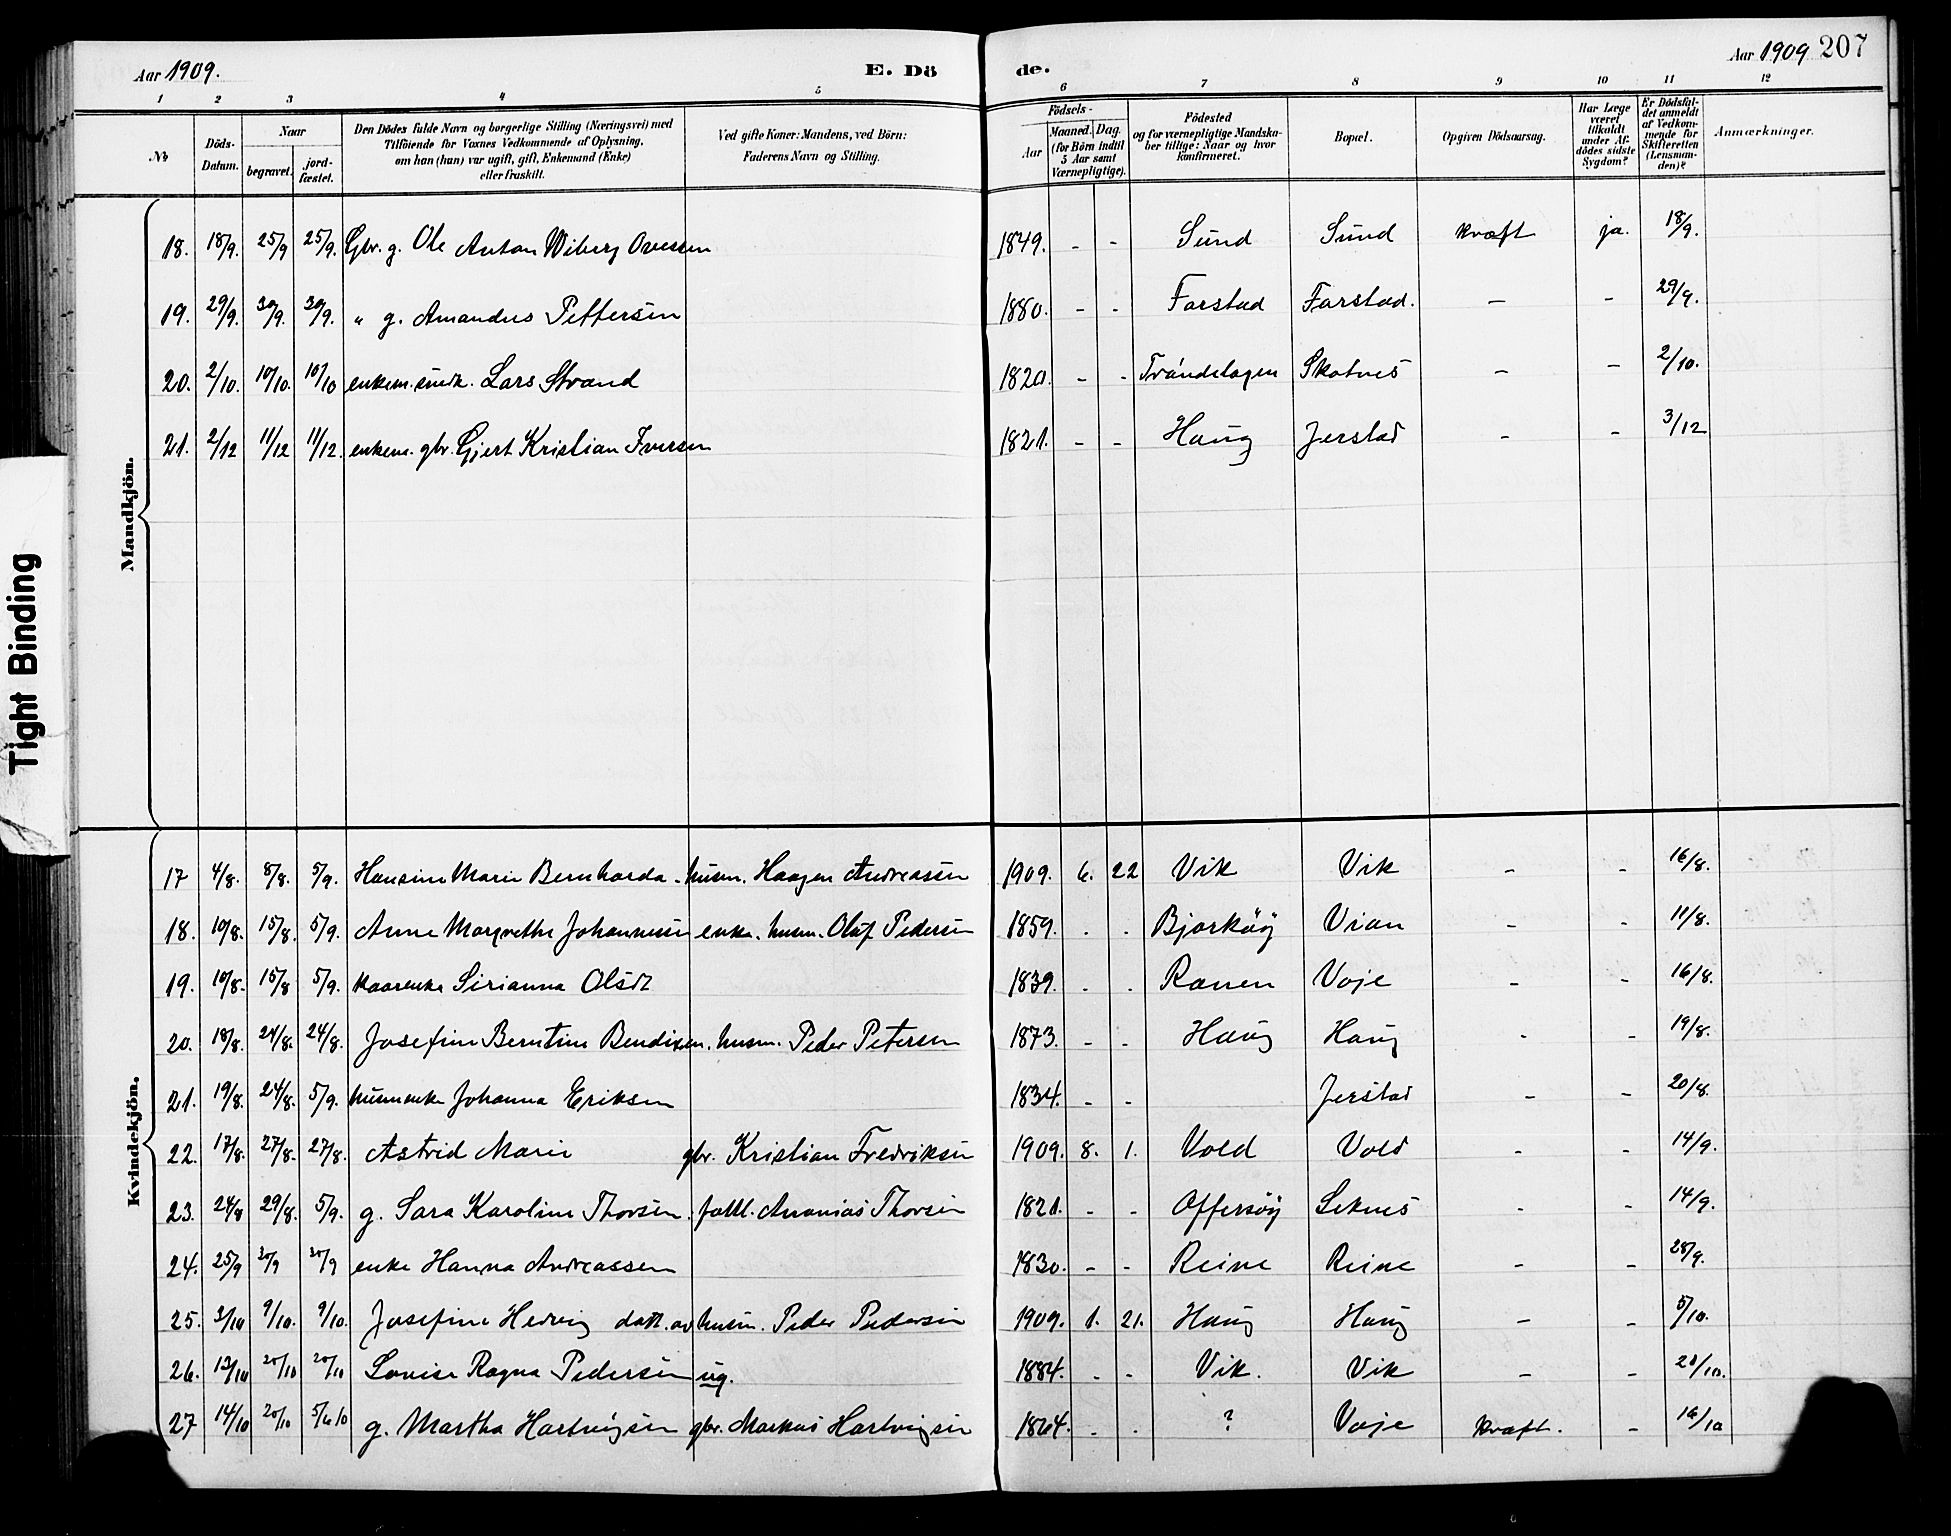 Aar 1909. E. Dö de. Aar 1909 207
1 2 3 4 5 6 7 8 9 10 11 12
No
Döds-Datum.
Naar
begravet.
jord-fæstet.
Den Dödes fulde Navn og borgerlige Stilling (Næringsvei) med
Tilföiende for Voxnes Vedkommende af Oplysning,
om han (hun) var ugift, gift, Enkemand (Enke)
eller fraskilt.
Ved gifte Koner: Mandens, ved Börn:
Faderens Navn og Stilling.
Födsels-
Aar
Maaned. Dag.
(for Börn indtil
5 Aar samt
Værnepligtige).
Födested
og for værnepligtige Mandska-
ber tillige: Naar og hvor
konfirmeret.
Bopæl.
Opgiven Dödsaarsag.
Har Læge
været
tilkaldt
under Af-
dödes sidste
Sygdom?
Er Dödsfal-
det anmeldt
af Vedkom-
mende for
Skifteretten
(Lensman-
den)?
Anmærkninger.
Mandkjön.
18. 18/9. 25/9 25/9. Gbr. g. Ole Anton Wiberg Ovesen 1849. - - Sund Sund kræft ja. 18/9.
19. 29/9. 30/9. 30/9. " g. Amandus Pettersen 1880. - - Farstad Farstad. - - 29/9.
20. 2/10. 10/10. 10/10 enkem. Lars Strand 1820. - - Tröndelagen Skotnes - - 2/10.
21. 2/12 11/12 11/12. enkem. gbr. Gjert Kristian Iversen 1821. - - Haug Jerstad - - 3/12
Tight Binding
Kvindekjön.
17 4/8. 8/8. 5/9. Hansine Marie Bernharda. husm. Haagen Andreassen 1909. 6. 22 Vik Vik - - 16/8.
18. 10/8. 15/8. 5/9. Anne Margrethe Johannesen enke. husm. Oluf Pedersen 1859. . . Bjarköy Vian - - 11/8.
19. 10/8. 15/8 5/9. kaarenke Sirianna Olsdt 1839. . . Ranen Voje - - 16/8.
20. 18/8. 24/8. 24/8. Josefine Berntine Bendixen. husm. Peder Petersen 1873. - - Haug Haug - - 19/8.
21. 19/8. 24/8. 5/9. husmenke Johanna Eriksen 1834. - - Jerstad - - 20/8.
22. 17/8. 27/8. 27/8. Astrid Marie gbr. Kristian Fredriksen 1909. 8. 1. Vold Vold - - 14/9.
23. 24/8 29/8. 5/9. g. Sara Karoline Thorsen. Ananias Thorsen 1821. - - Offersöy Leknes - - 14/9.
24. 25/9 30/9 30/9 enke Hanna Andreassen 1830. - - Reine Reine - - 28/9.
25. 3/10 9/10. 9/10. Josefine Hedvig datt. av husm. Peder Pedersen 1909. 1. 21. Haug Haug - - 5/10.
26. 13/10 20/10 20/10 Lovise Ragna Pedersen ug. 1884. - - Vik. Vik - - 20/10.
27 14/10 20/10 g. Martha Hartvigsen gbr. Markus Hartvigsen 1864. - . ? Voje kræft. -  16/10